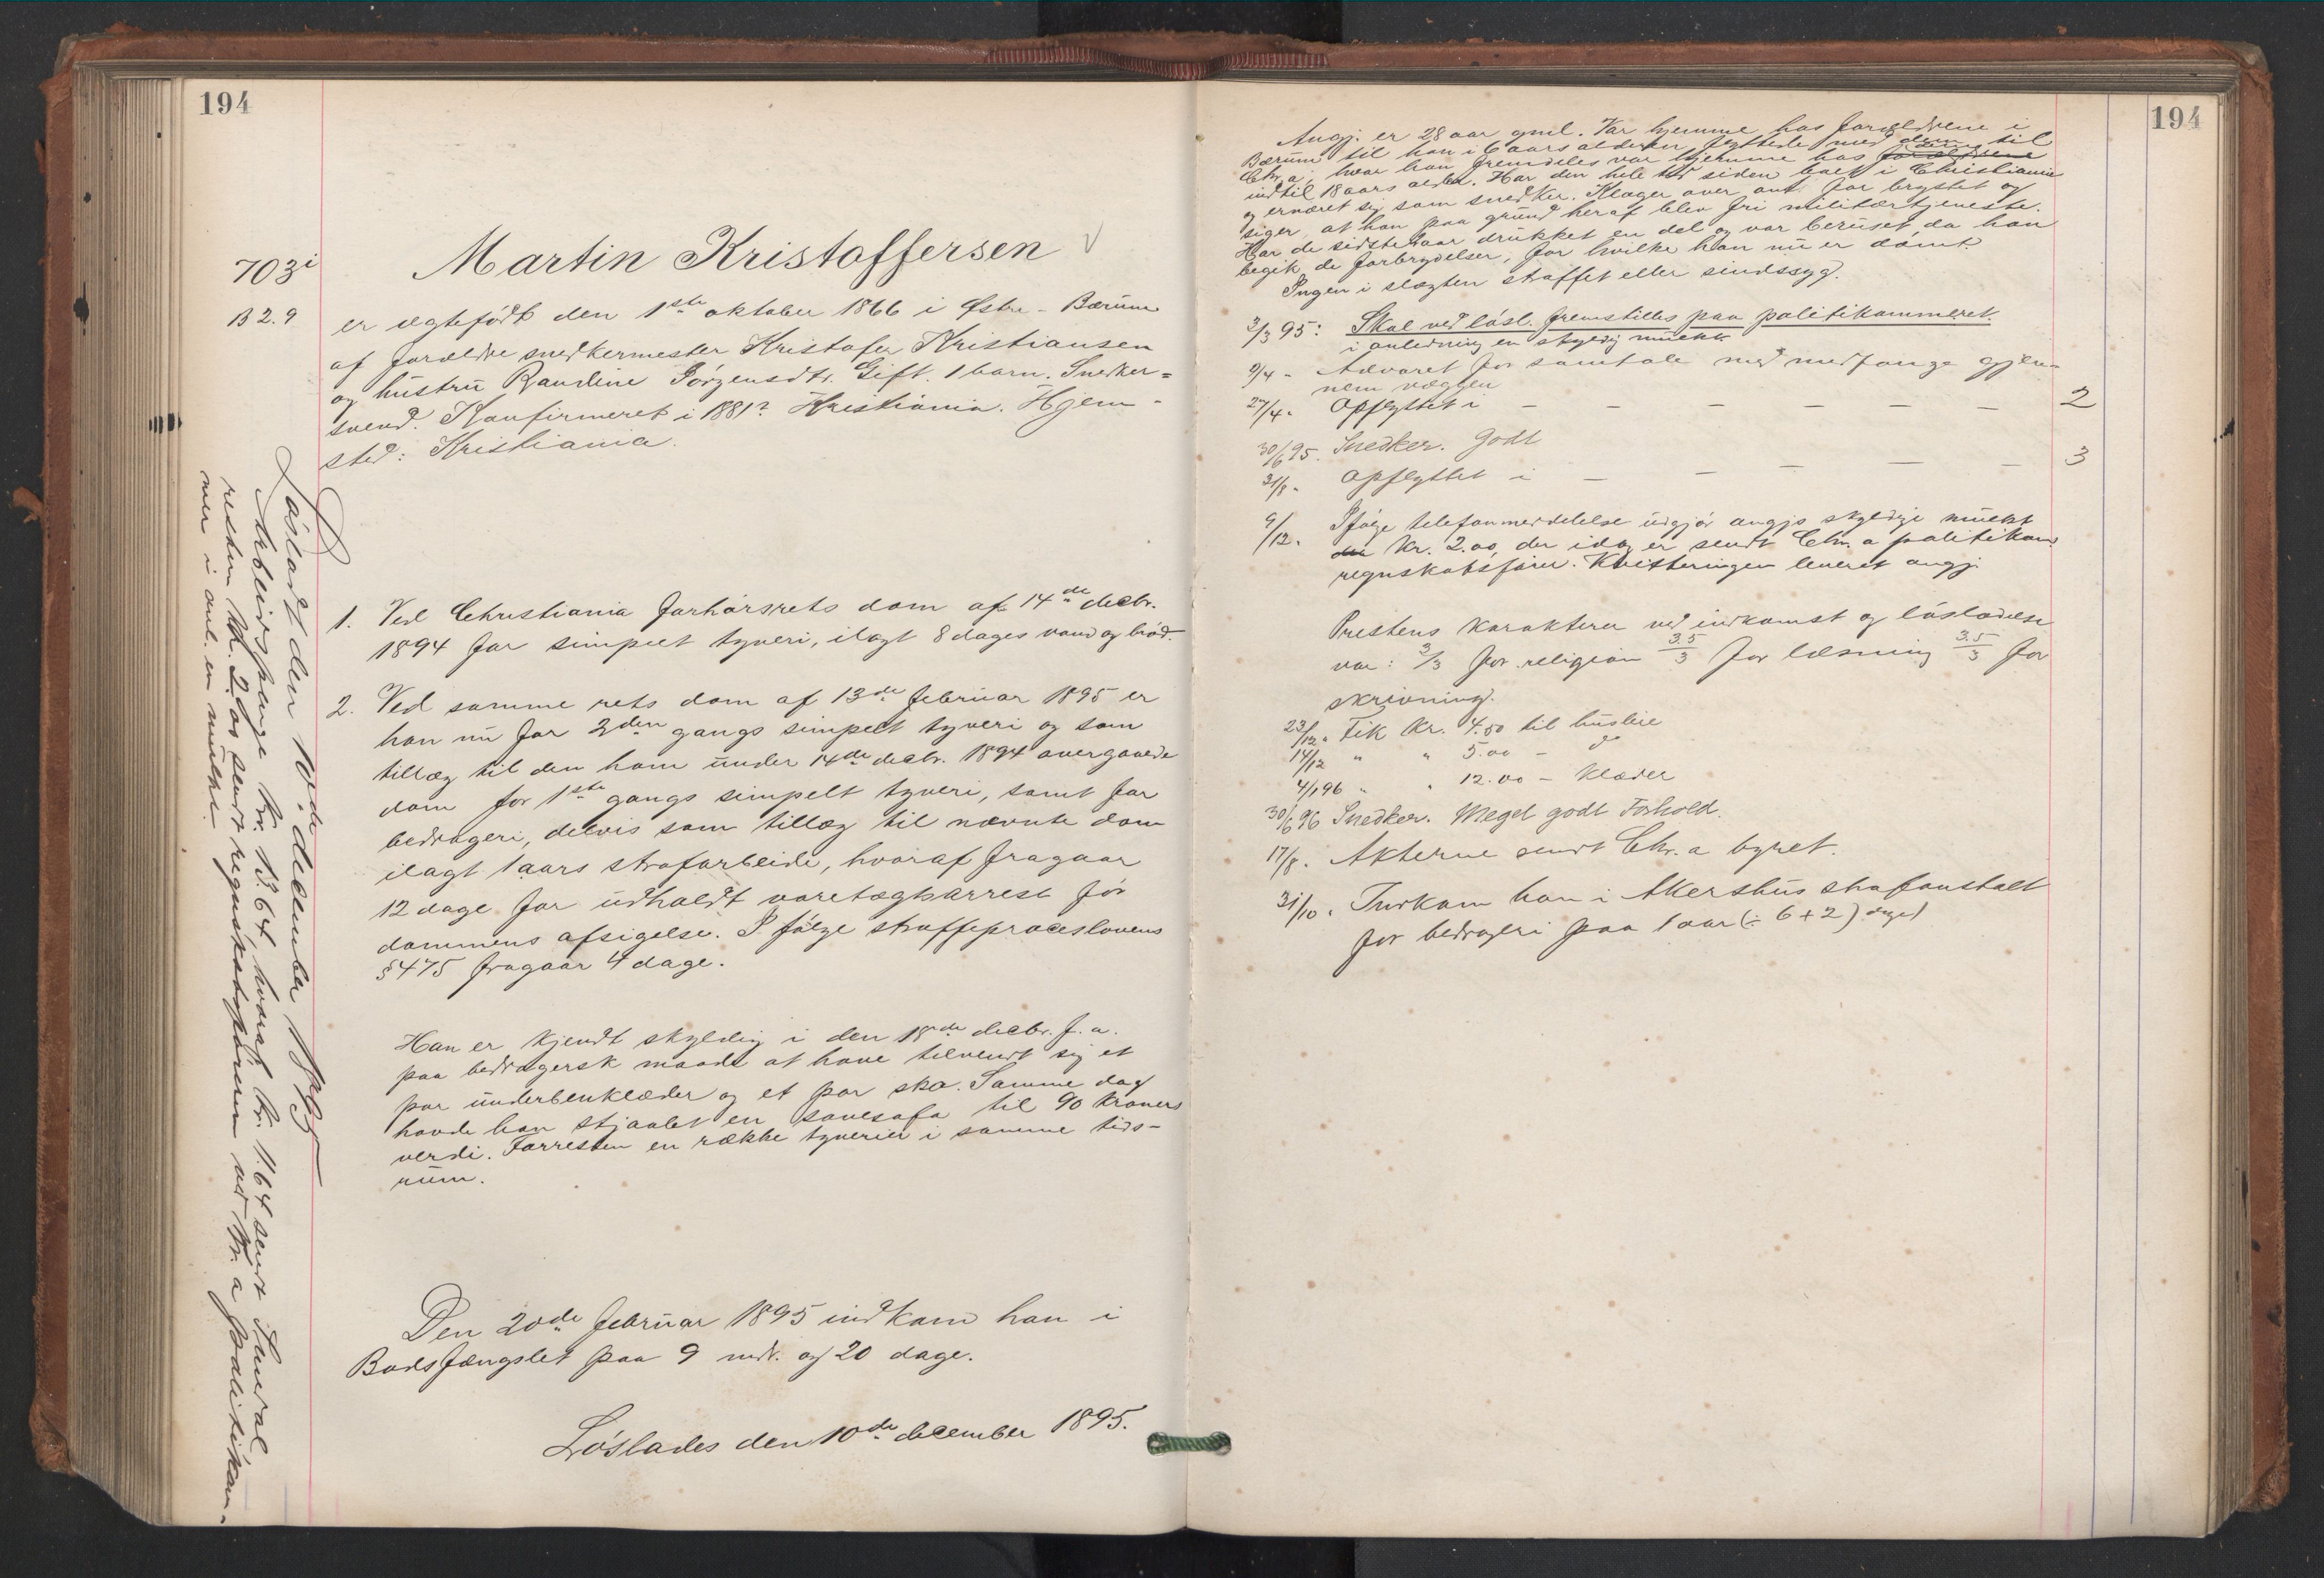 194
703i
B 2.9
Martin Kristoffersen
er ægtefødt den 1ste oktober 1866 i Østre-Bærum
af forældre snedkermester Kristofer Kristiansen
og hustru Randine Jørgensdtr. Gift. 1 barn. Snedker=
svend. Konfirmeret i 1881? Kristiania. Hjem-
sted: Kristiania.
1. Ved Christiania forhørsrets dom af 14de decbr.
1894 for simpelt tyveri, ilagt 8 dages vand og brød.
2. Ved samme rets dom af 13de februar 1895 er
han nu for 2den gangs simpelt tyveri og som
tillæg til den ham under 14de decbr. 1894 overgaaede
dom for 1ste gangs simpelt tyveri, samt for
bedrageri, delvis som tillæg til nævnte dom
ilagt 1 aars strafarbeide, hvoraf fragaar
12 dage for udholdt varetægtsarrest før
dommens afsigelse. I følge straffeproceslovens
§ 475 fragaar 4 dage.
Han er kjendt skyldig i den 18de decbr. f. a.
paa bedragersk maade at have tilvendt sig et
par underbenklæder og et par sko. Samme dag
havde han stjaalet en sovesofa til 90 kroners
verdi. Forresten en række tyverier i samme tids-
rum.
Den 20de februar 1895 indkom han i
Bodsfængslet paa 9 mdr. og 20 dage.
Løslades den 10de december 1895.
Løsladt den 10de december 1895
Arbeidspenge kr. 13.64, hvoraf kr. 11.64 sendt
resten kr. 2.00 sendt regnskabsføreren ved Kr.a politikam-
mer i anl. en mulkt.
194
Angj. er 28 aar gml. Var hjemme hos forældrene i
Bærum til han i 6 aars alderen flyttede med dem til
Chr.a, hvor han fremdeles var hjemme hos forældrene dem
indtil 18 aars alder. Har den hele tid siden boet i Christiania
og ernæret sig som snedker. Klager over ondt for brystet og
siger, at han paa grund heraf blev fri militærtjeneste.
Har de sidste aar drukket en del og var beruset, da han
begik de forbrydelser, for hvilke han nu er dømt.
Ingen i slægten straffet eller sindssyg.
2/3 95: Skal ved løsl. fremstilles paa politikammeret
i anledning en skyldig mulkt
9/4 - Advaret for samtale med medfange gjen-
nem væggen
27/4 - Opflyttet i - - - - - - 2
30/6 95. Snedker. Godt
31/8 - Opflyttet i - - - - - 3
9/12 - Ifølge telefonmeddelelse udgjør angjs skyldige mulkt
kr. 2.00, der idag er sendt Chr.a politikam.
regnskabsfører. Kvitteringen leveret angj.
Prestens karakterer ved indkomst og løsladelse
var: 3/3 for religion 3.5/3 for læsning 3.5/3 for
skrivning.
23/12 - Fik kr. 4.50 til husleie
14/12 " " 5.00 - do
4/1 96 " " 12.00 - klæder
30/6 96 Snedker. Meget godt Forhold.
17/8 - Akterne sendt Chr.a byret.
31/10 - Indkom han i Akershus strafanstalt
for bedrageri paa 1 aar (÷ 6 + 2) dage)